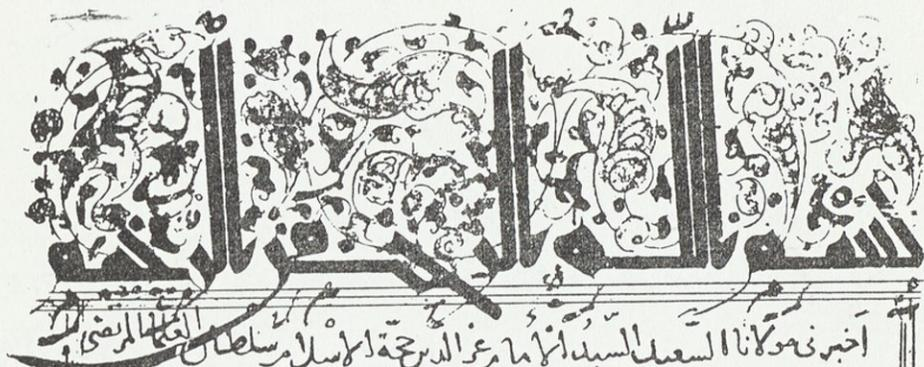 بسم الله الرحمن الرحيم
اخبرنى مولانا السعيد السيد الامام عز الدين حجة الاسلام سلطان العلما المرتضى